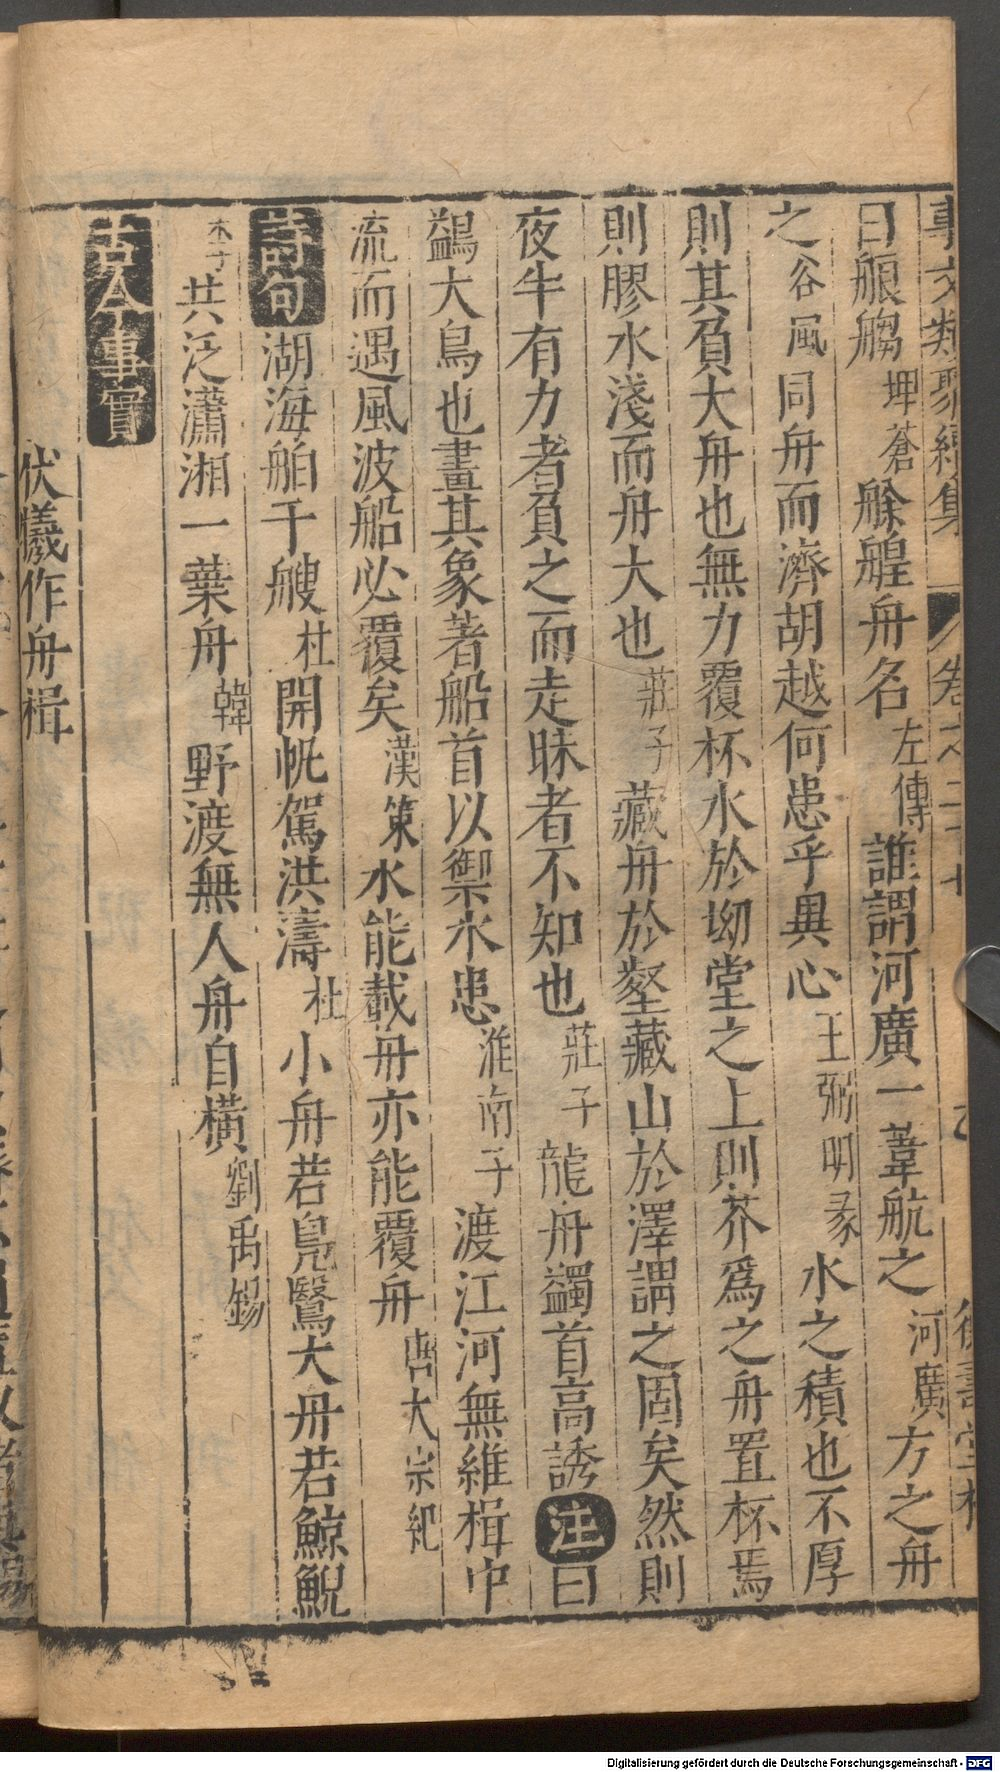 事文類聚續集 卷之二十七
曰艆艒埤蒼艅艎舟名左傳誰謂河廣一葦航之河廣方之舟
之谷風同舟而濟胡越何患乎異心王弼明彖水之積也不厚
則其負大舟也無力覆杯水於坳堂之上則芥爲之舟置杯焉
則膠水淺而舟大也莊子藏舟於壑藏山於澤謂之固矣然則
夜半有力者負之而走昧者不知也莊子龍舟鷁首高誘注曰
鷁大鳥也畫其象著船首以禦水患淮南子渡江河無維楫中
流而遇風波船必覆矣漢策水能載舟亦能覆舟唐太宗紀
詩句湖海舶千艘杜開帆駕洪濤杜小舟若鳧鷖大舟若鯨鯢
李共泛瀟湘一葉舟韓野渡無人舟自橫劉禹錫
古今事實
伏犧作舟楫
Digitalisierung gefördert durch die Deutsche Forschungsgemeinschaft - DFG